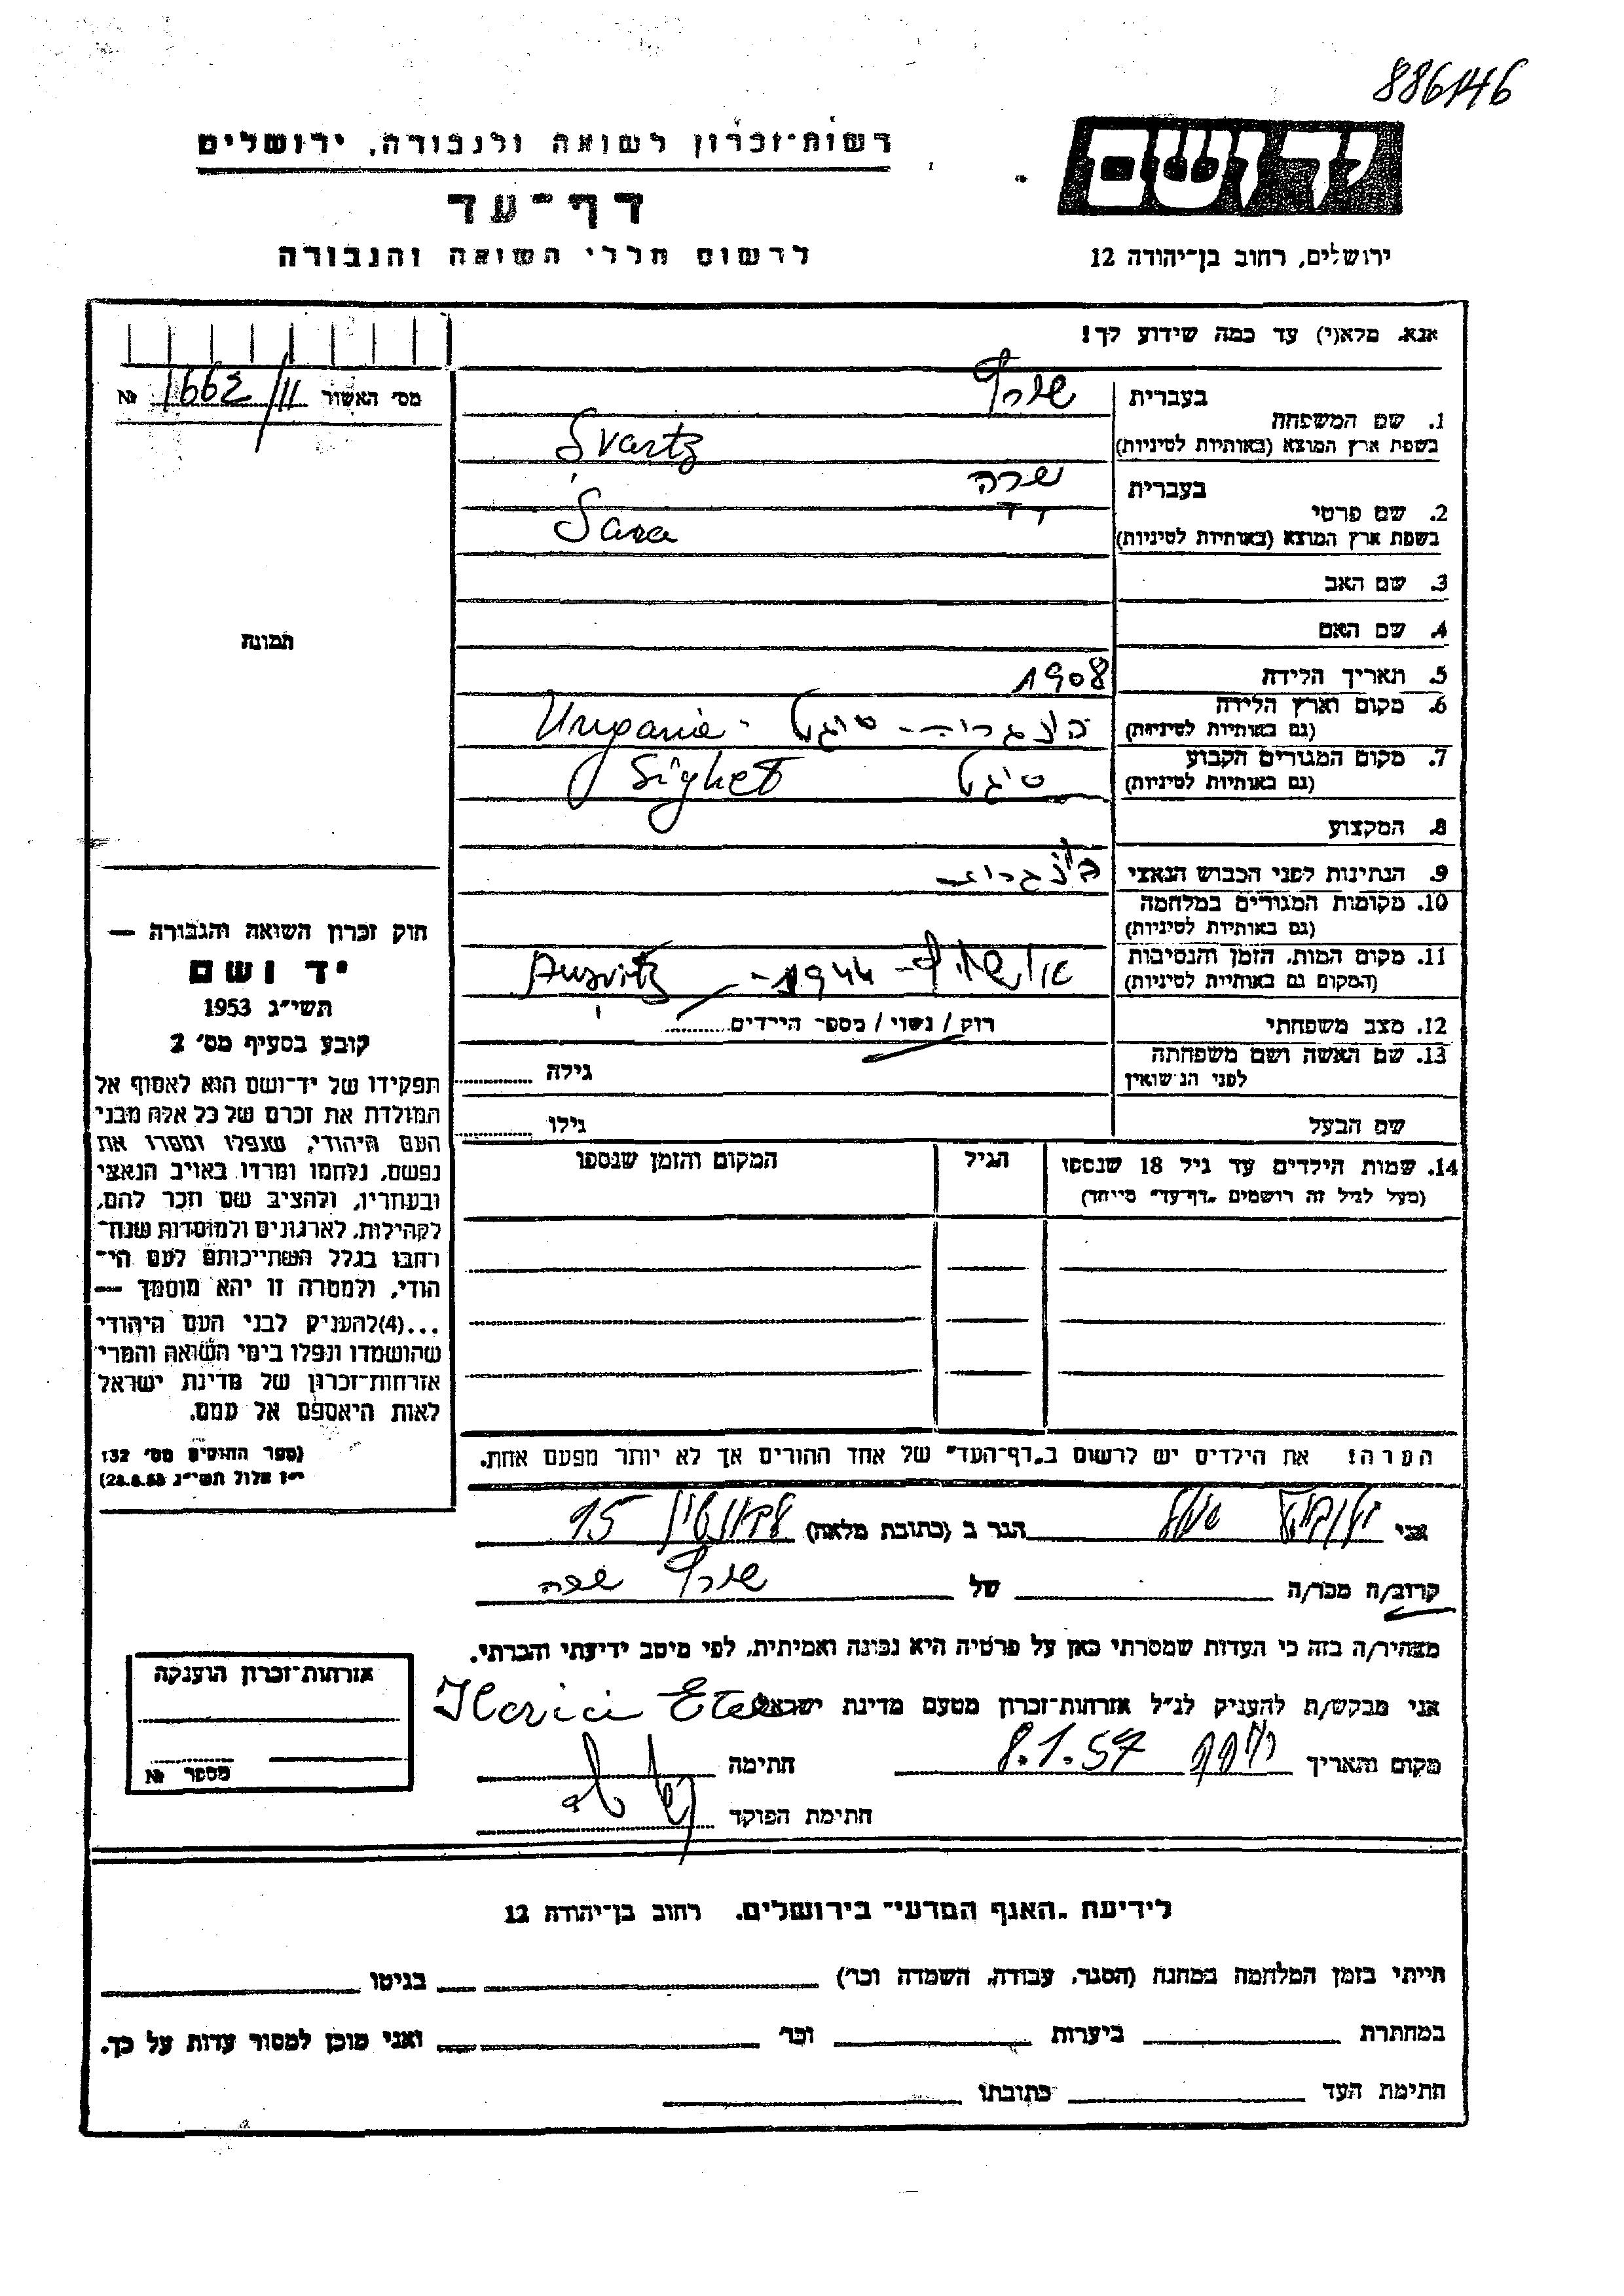 886146
רשות-זכרון לשואה ולגבורה, ירושלים
יד ושם
דף-עד
לרשום חללי השואה והגבורה
ירושלים, רחוב בן-יהודה 12
אנא, מלא(י) עד כמה שידוע לך!
מס' האשור 1662/11 №
בעברית שורץ
1. שם המשפחה
בשפת ארץ המוצא (באותיות לטיניות) Svartz
בעברית שרה
2. שם פרטי
בשפת ארץ המוצא (באותיות לטיניות) Sara
3. שם האב
4. שם האם
תמונה
5. תאריך הלידה 1908
6. מקום וארץ הלידה
(גם באותיות לטיניות) הונגריה - סיגט - Ungaria
7. מקום המגורים הקבוע
(גם באותיות לטיניות) סיגט Sighet
8. המקצוע
9. הנתינות לפני הכבוש הנאצי הונגרית
10. מקומות המגורים במלחמה
(גם באותיות לטיניות)
11. מקום המות, הזמן והנסיבות
(המקום גם באותיות לטיניות) אושויץ - 1944 - Ausvitz
12. מצב משפחתי רווק / נשוי / מספר הילדים
13. שם האשה ושם משפחתה
לפני הנשואין גילה
שם הבעל גילו
14. שמות הילדים עד גיל 18 שנספו הגיל המקום והזמן שנספו
(מעל לגיל זה רושמים "דף-עד" מיוחד)
הערה: את הילדים יש לרשום ב"דף-העד" של אחד ההורים אך לא יותר מפעם אחת.
חוק זכרון השואה והגבורה —
יד ושם
תשי"ג 1953
קובע בסעיף מס' 2
תפקידו של יד-ושם הוא לאסוף אל
המולדת את זכרם של כל אלה מבני
העם היהודי, שנפלו ומסרו את
נפשם, נלחמו ומרדו באויב הנאצי
ובעוזריו, ולהציב שם וזכר להם,
לקהילות, לארגונים ולמוסדות שנח-
רבו בגלל השתייכותם לעם הי-
הודי, ולמטרה זו יהא מוסמך —
...(4) להעניק לבני העם היהודי
שהושמדו ונפלו בימי השואה והמרי
אזרחות-זכרון של מדינת ישראל
לאות היאספם אל עמם.
(ספר החוקים מס' 132
י"ז אלול תשי"ג 28.8.53)
אני הגר ב (כתובת מלאה) 15
קרוב/ה מכר/ה של שורץ שרה
מצהיר/ה בזה כי העדות שמסרתי כאן על פרטיה היא נכונה ואמיתית, לפי מיטב ידיעתי והכרתי.
אני מבקש/ת להעניק לנ"ל אזרחות-זכרון מטעם מדינת ישראל
מקום ותאריך 8.1.57 חתימה
חתימת הפוקד
אזרחות-זכרון הוענקה
מספר №
לידיעת "האגף המדעי" בירושלים, רחוב בן-יהודה 12
הייתי בזמן המלחמה במחנה (הסגר, עבודה, השמדה וכו') בגיטו
במחתרת ביערות וכו' ואני מוכן למסור עדות על כך.
חתימת העד כתובתו